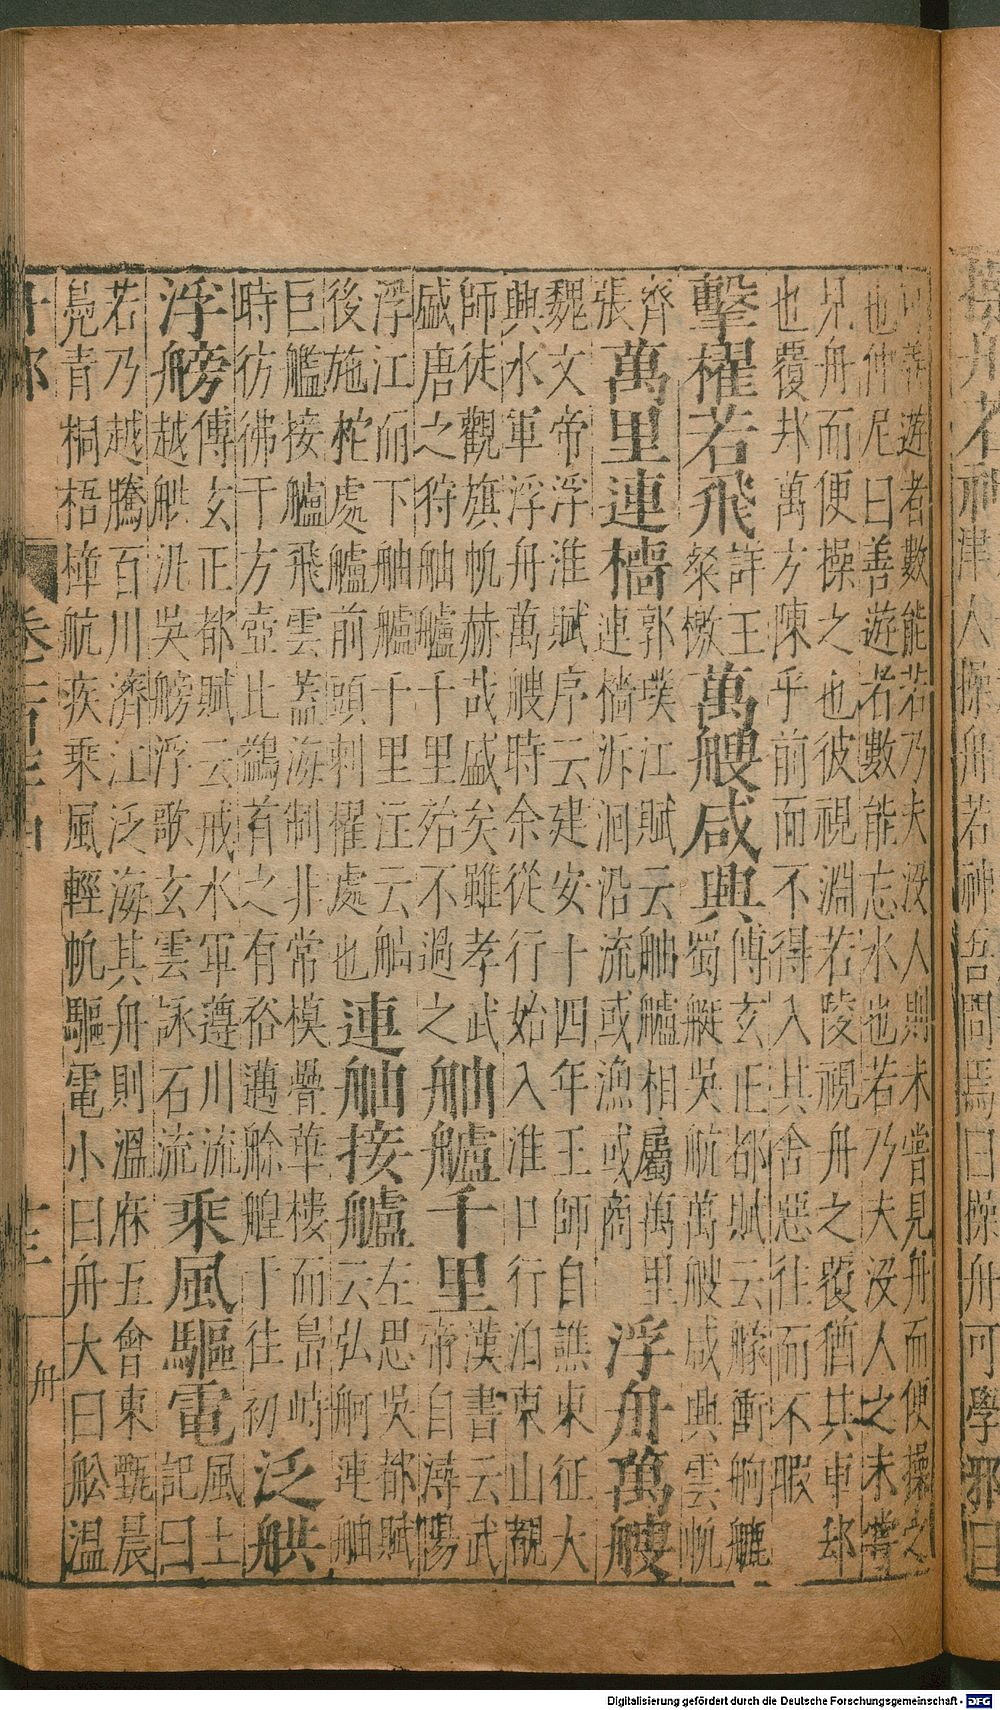 操舟若神津人操舟若神吾問焉曰操舟可學邪曰
可善遊者數能若乃夫沒人則未嘗見舟而便操之
也仲尼曰善遊者數能忘水也若乃夫沒人之未嘗
見舟而便操之也彼視淵若陵視舟之覆猶其車却
也覆却萬方陳乎前而不得入其舍惡往而不暇
擊櫂若飛
詳王
粲檄
萬艘咸興
傅玄正都賦云艨衝舸艫
蜀艇吳航萬艘咸興雲帆
齊
張
萬里連檣
郭璞江賦云舳艫相屬萬里
連檣泝洄沿流或漁或商
浮舟萬艘
魏文帝浮淮賦序云建安十四年王師自譙東征大
興水軍浮舟萬艘時余從行始入淮口行泊東山覩
師徒觀旗帆赫哉盛矣雖孝武
盛唐之狩舳艫千里殆不過之
舳艫千里
漢書云武
帝自潯陽
浮江而下舳艫千里注云舳
後施柁處艫前頭刺櫂處也
連舳接艫
左思吳都賦
云弘舸連舳
巨艦接艫飛雲蓋海制非常模疊華樓而島峙
時彷彿于方壺比鷁有之有裕邁艅艎于往初
泛舼
浮艕
傅玄正都賦云戒水軍遵川流
越舼汎吳艕浮歌玄雲詠石流
乘風驅電
風土
記曰
若乃越騰百川濟江泛海其舟則溫麻五會東甄晨
鳧青桐梧樟航疾乘風輕帆驅電小曰舟大曰舩溫
舟部
十三
舟
Digitalisierung gefördert durch die Deutsche Forschungsgemeinschaft - DFG